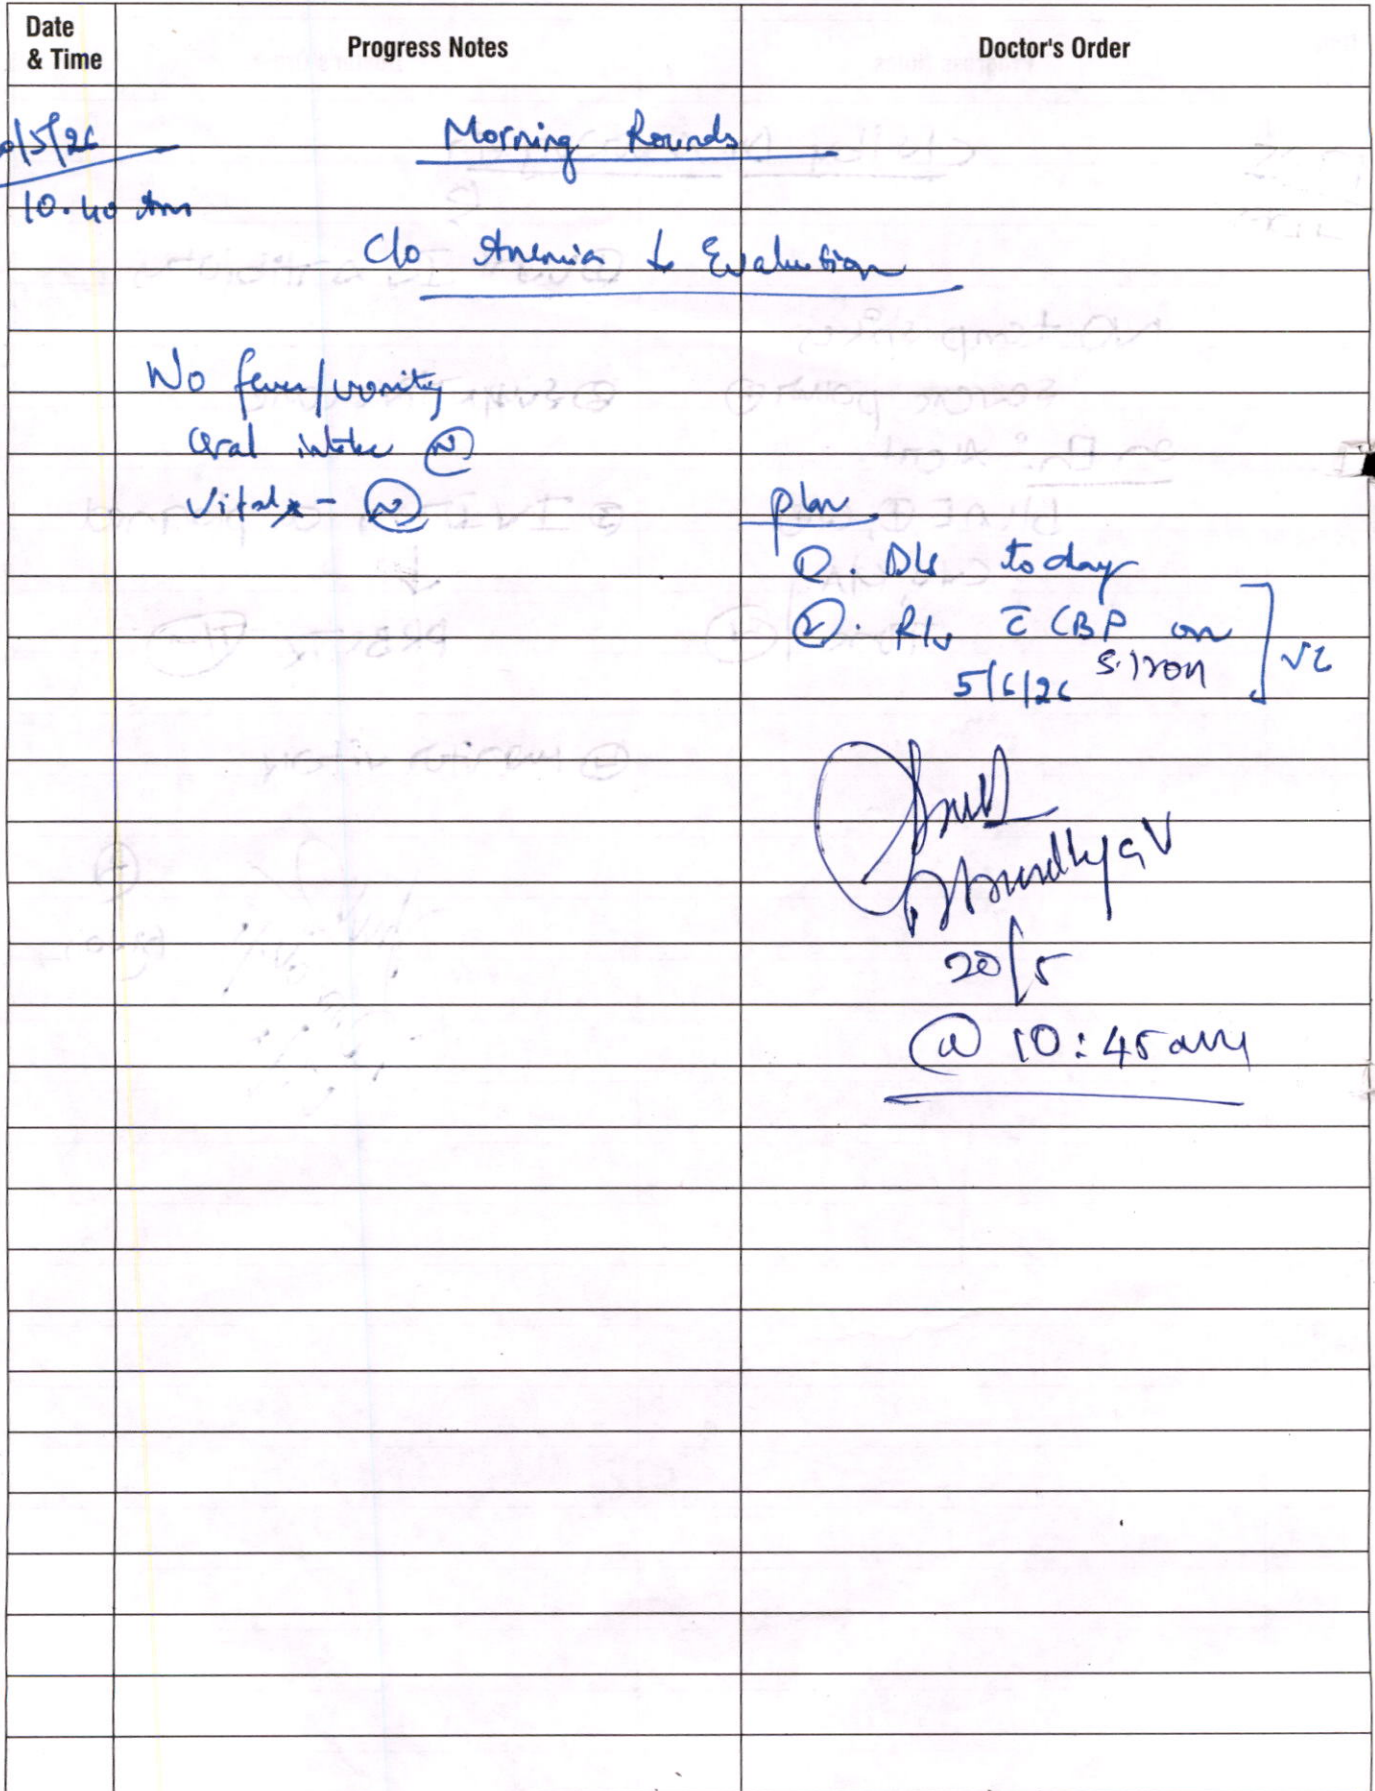 Date & Time
Progress Notes
Doctor's Order
/5/26
Morning Rounds
10.40 Am
C/o Anemia ↓ Evaluation
No fever/vomiting
Oral intake Ⓝ
Vitals - Ⓝ
plan
①. D/s today
②. R/v c̅ CBP on
5/6/26 S.Iron
20/5
@ 10:45 am